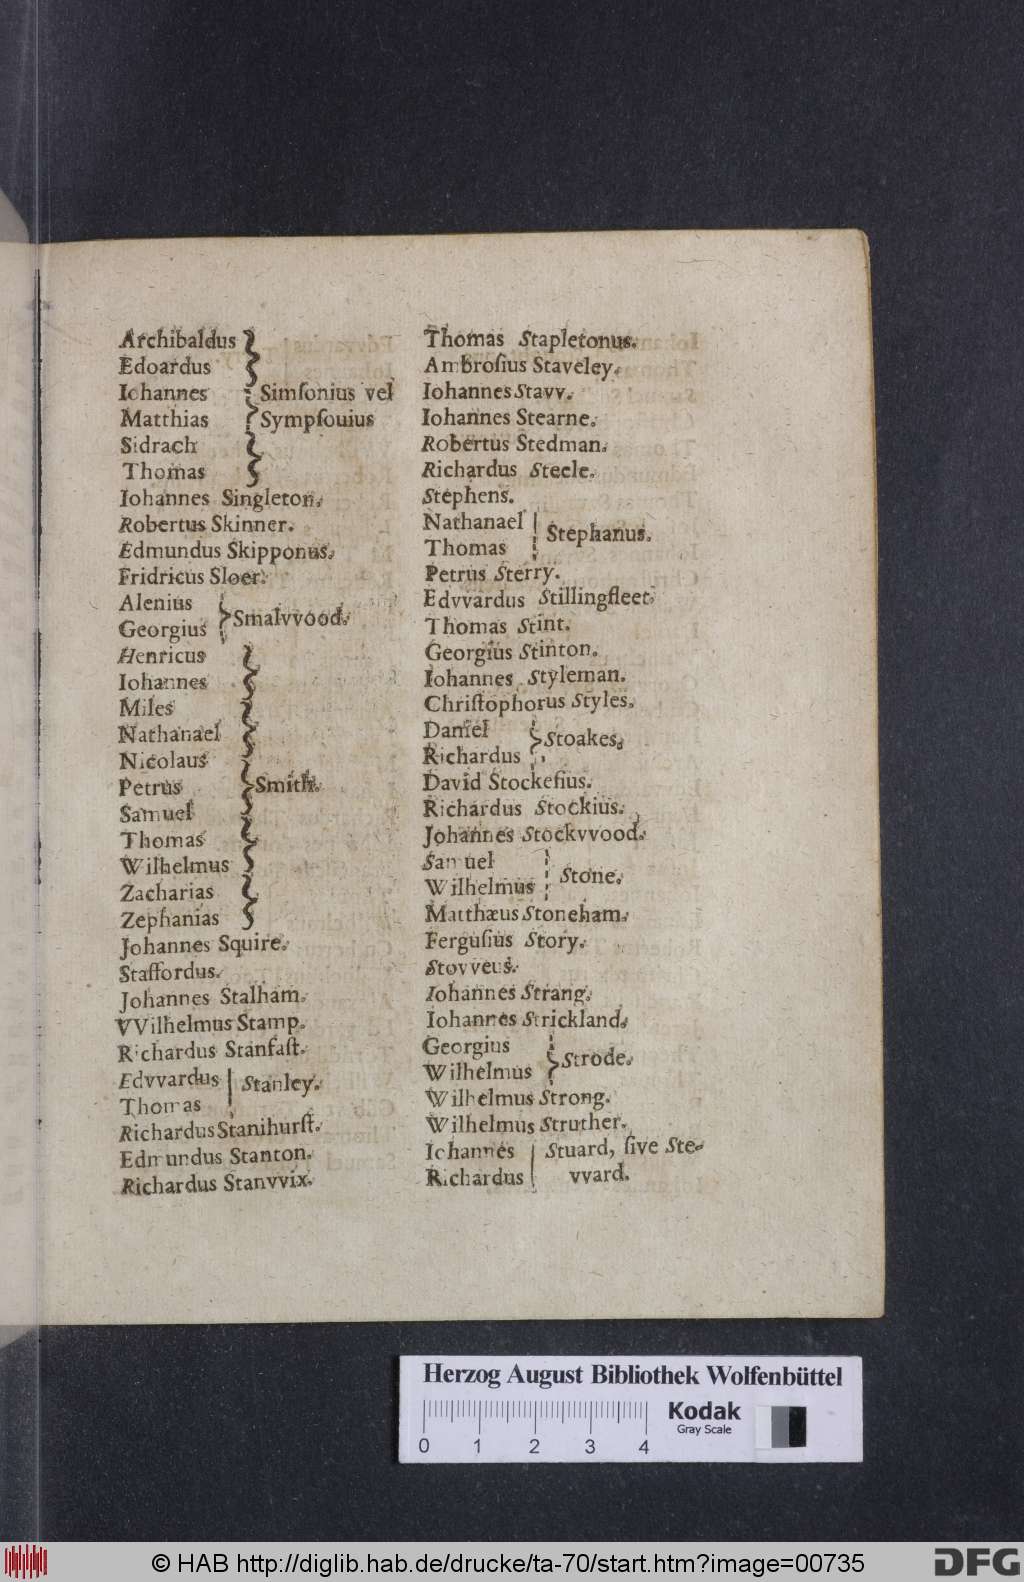 Archibaldus
Edoardus
Iohannes
Matthias
Sidrach
Thomas
Simſonius vel
Sympſouius
Iohannes Singleton.
Robertus Skinner.
Edmundus Skipponus.
Fridricus Sloer.
Alenius
Georgius
Smalvvood.
Henricus
Iohannes
Miles
Nathanael
Nicolaus
Petrus
Samuel
Thomas
Wilhelmus
Zacharias
Zephanias
Smith.
Johannes Squire.
Staffordus.
Johannes Stalham.
VVilhelmus Stamp.
Richardus Stanfaſt.
Edvvardus
Thomas
Stanley.
Richardus Stanihurſt.
Edmundus Stanton.
Richardus Stanvvix.
Thomas Stapletonus.
Ambroſius Staveley.
Iohannes Stavv.
Iohannes Stearne.
Robertus Stedman.
Richardus Steele.
Stephens.
Nathanael
Thomas
Stephanus.
Petrus Sterry.
Edvvardus Stillingfleet.
Thomas Stint.
Georgius Stinton.
Iohannes Styleman.
Chriſtophorus Styles.
Daniel
Richardus
Stoakes.
David Stockeſius.
Richardus Stockius.
Johannes Stockvvood.
Samuel
Wilhelmus
Stone.
Matthæus Stoneham.
Ferguſius Story.
Stovveus.
Iohannes Strang.
Iohannes Strickland.
Georgius
Wilhelmus
Strode.
Wilhelmus Strong.
Wilhelmus Struther.
Iohannes
Richardus
Stuard, ſive Ste-
vvard.
Herzog August Bibliothek Wolfenbüttel
Kodak
Gray Scale
0 1 2 3 4
© HAB http://diglib.hab.de/drucke/ta-70/start.htm?image=00735
DFG